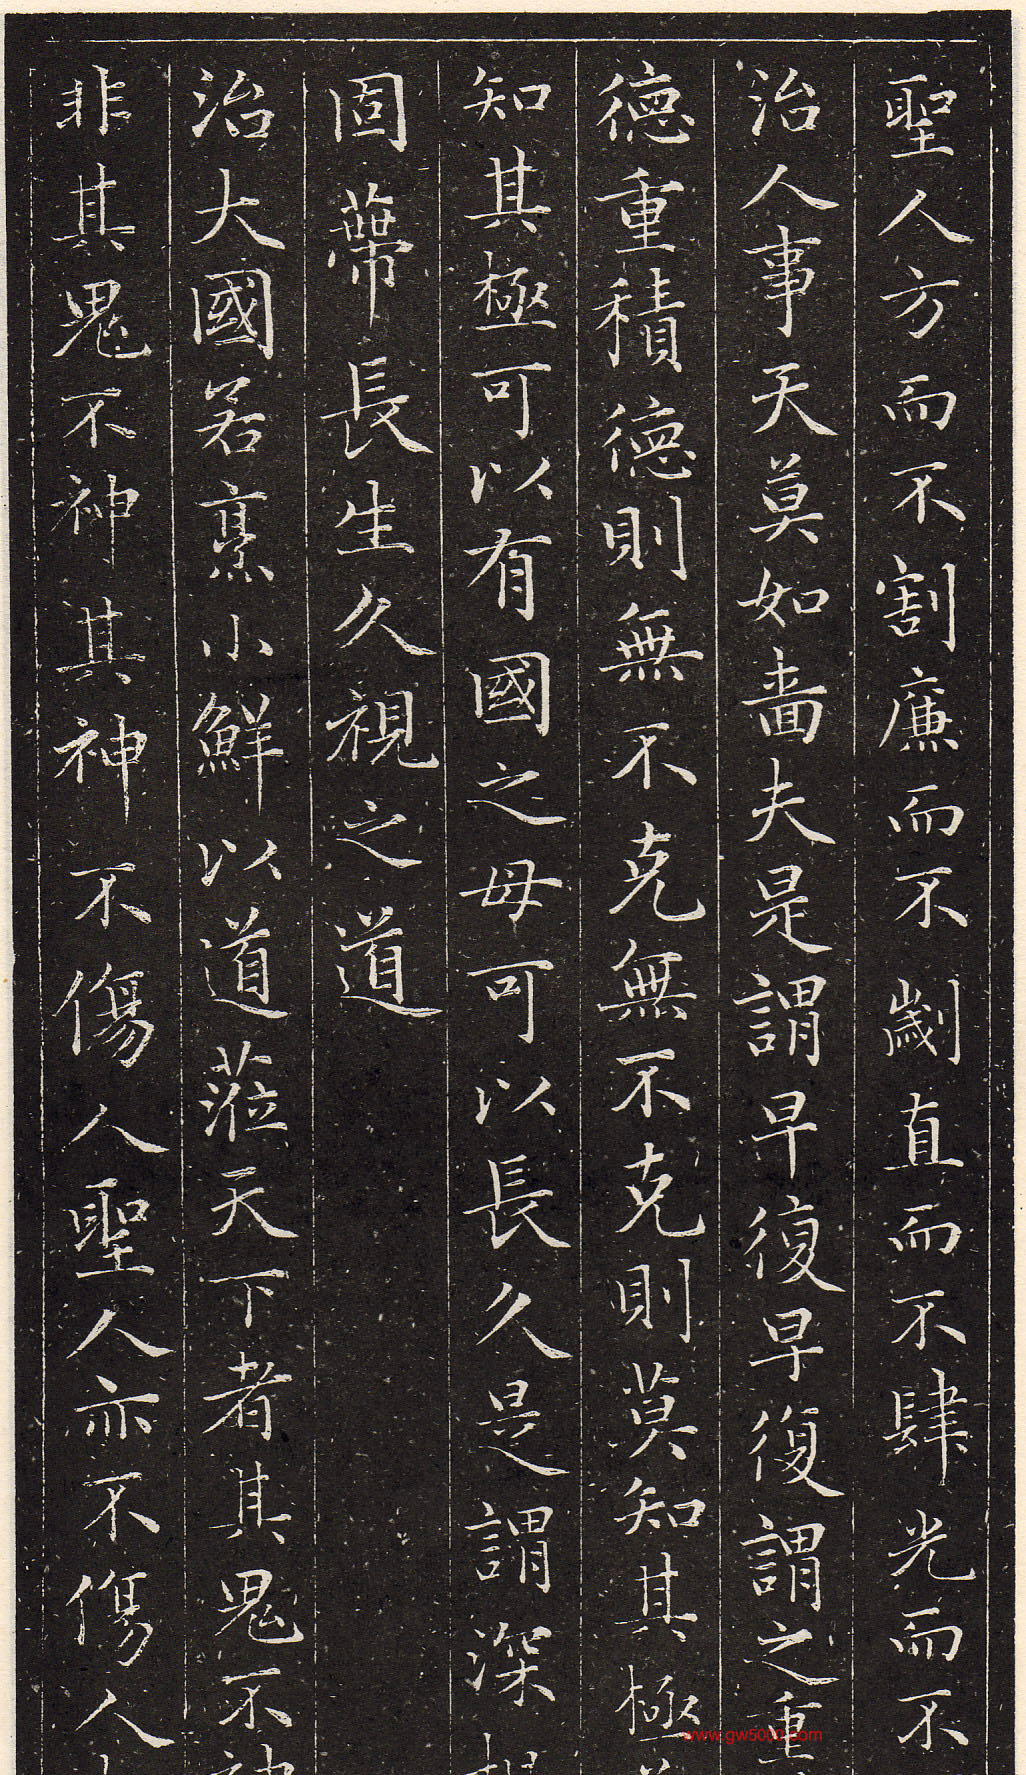 聖人方而不割廉而不劌直而不肆光而不
治人事天莫如嗇夫是謂早復早復謂之重
德重積德則無不克無不克則莫知其極
知其極可以有國之母可以長久是謂深
固蔕長生久視之道
治大國若烹小鮮以道蒞天下者其鬼不
非其鬼不神其神不傷人聖人亦不傷人
www.gw5000.com